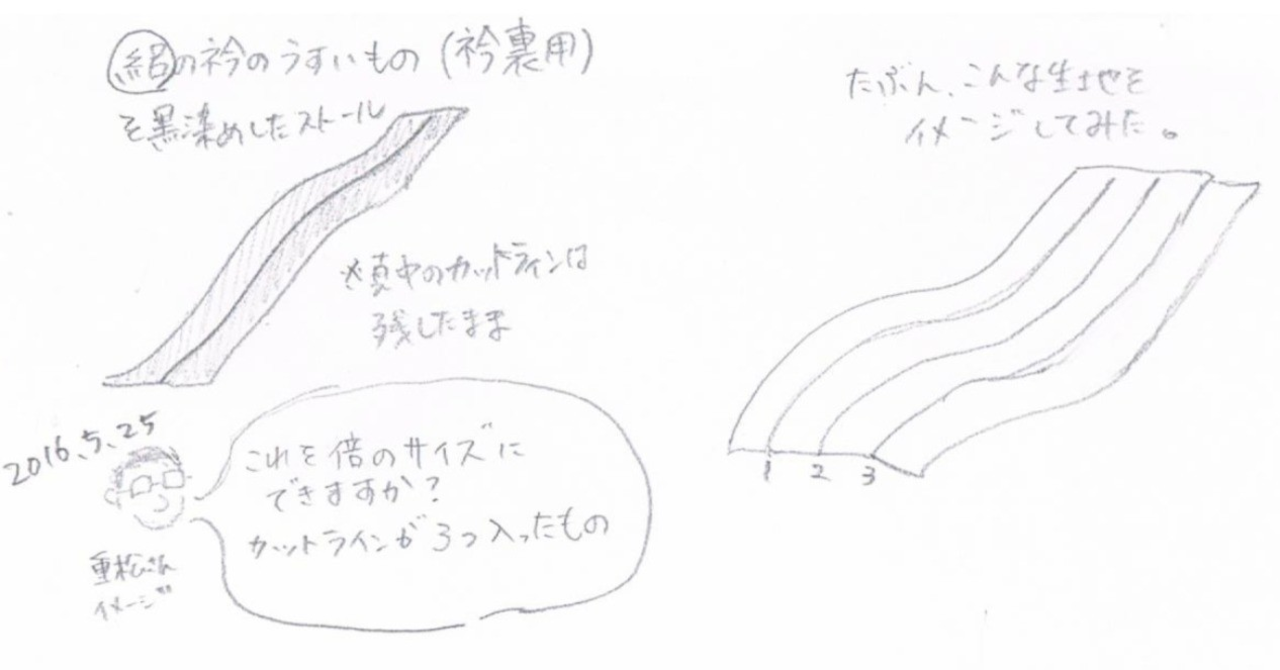 絽の衿のうすいもの (衿裏用)
を黒染めしたストール
※真中のカットラインは
残したまま
2016.5.25
重松さん
イメージ
これを倍のサイズに
できますか?
カットラインが3つ入ったもの
たぶん、こんな生地を
イメージしてみた。
1 2 3